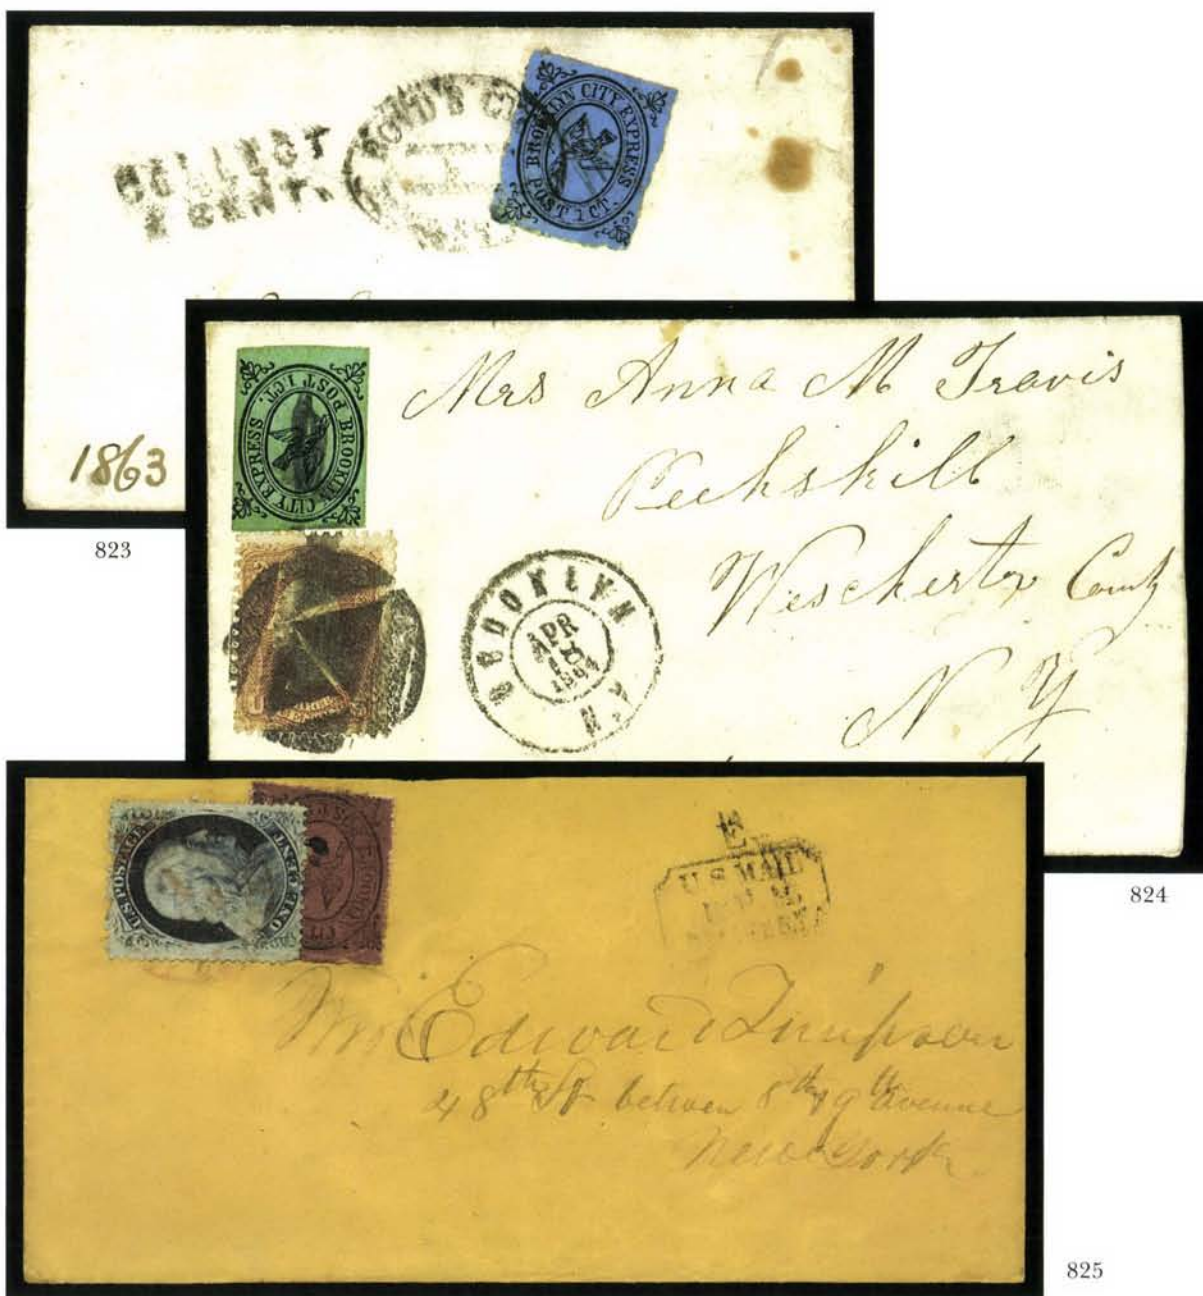 COLLECT
CENT.
BOYD'S CI
BROOKLYN CITY EXPRESS
POST 1CT.
1863
823
BROOKLYN CITY EXPRESS POST 1CT.
Mrs Anna M Travis
Peekskill
Weschester County
N Y
BROOKLYN N.Y.
APR
824
U.S. POSTAGE
ONE CENT
U.S. MAIL
Mr Edward
48th St between 8th & 9th Avenue
New York
825